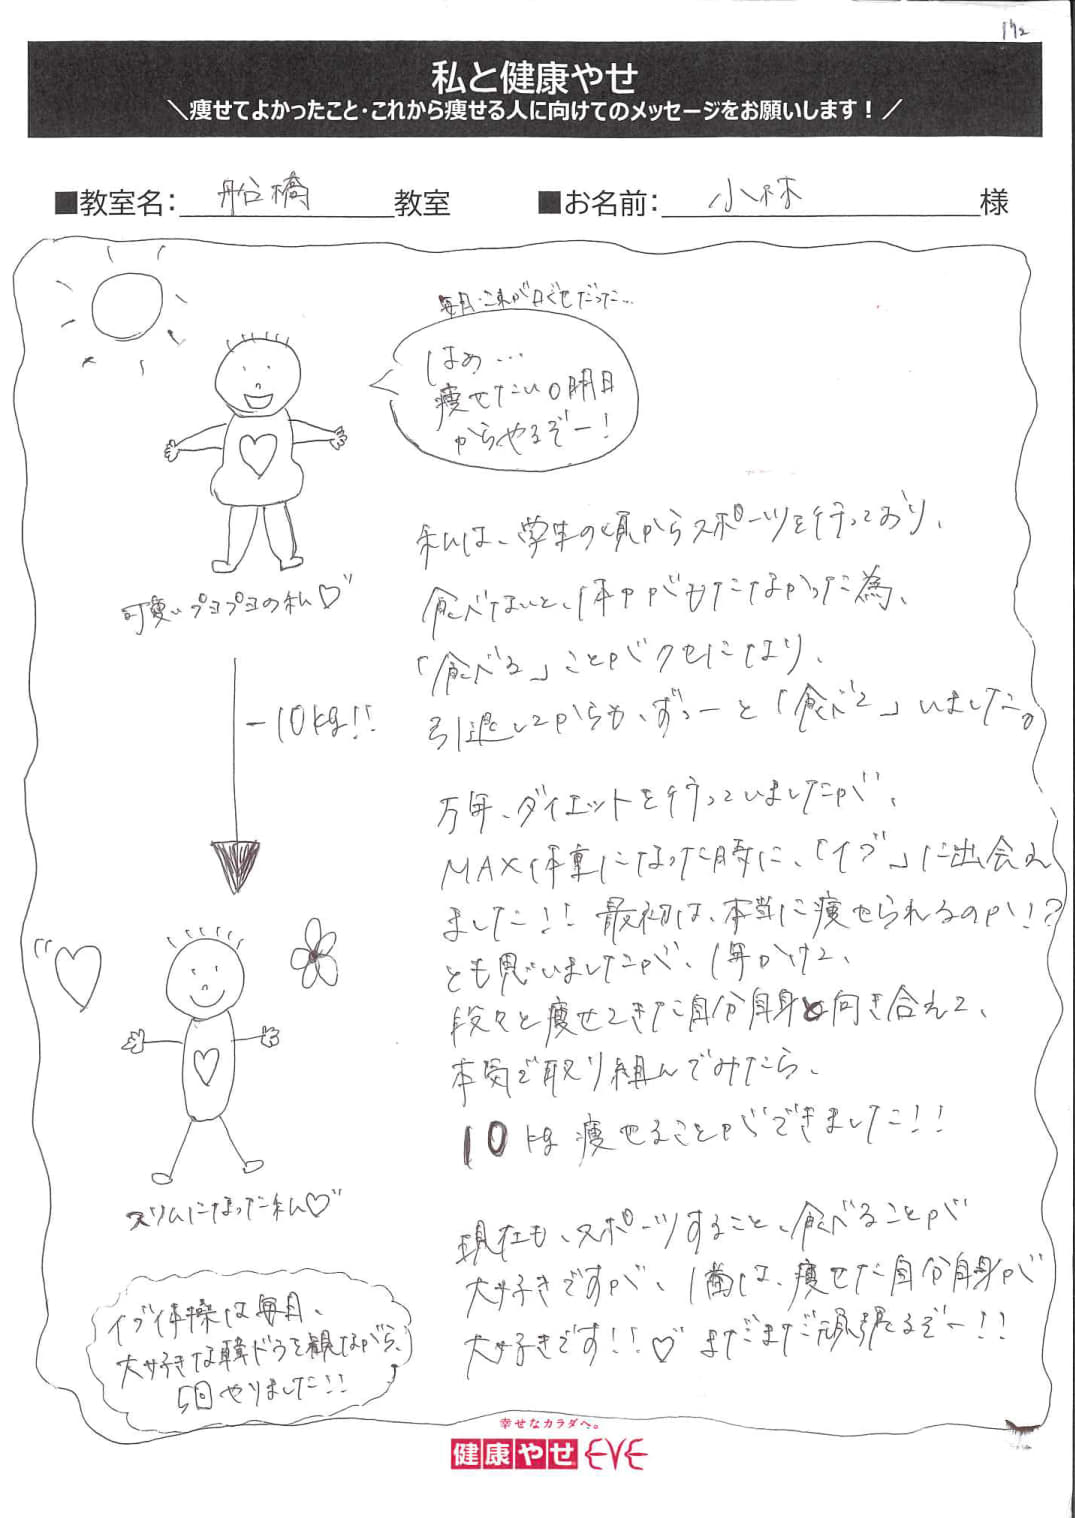 私と健康やせ
＼痩せてよかったこと・これから痩せる人に向けてのメッセージをお願いします！／
■教室名：船橋教室 ■お名前：小林様
毎日、これが口ぐせだった…
はぁ…
痩せたい。明日
からやるぞー！
可愛いプヨプヨの私♡"
-10kg!!
私は、学生の頃からスポーツを行っており、
食べないと、体力がもたなかった為、
「食べる」ことがクセになり、
引退してからも、ずっーと「食べて」いました。
万年、ダイエットを行っていましたが、
MAX体重になった時に、「イブ」に出会え
ました!! 最初は、本当に痩せられるのか!?
とも思いましたが、1年かけて、
段々と痩せてきた自分自身と向き合えて、
本気で取り組んでみたら、
10kg痩せることができました!!
スリムになった私♡"
現在も、スポーツすること、食べることが
大好きですが、1番は、痩せた自分自身が
大好きです!!♡ まだまだ頑張るぞー!!
イブ体操は毎日、
大好きな韓ドラを観ながら、
5回やりました!!
幸せなカラダへ。
健康やせ EVE